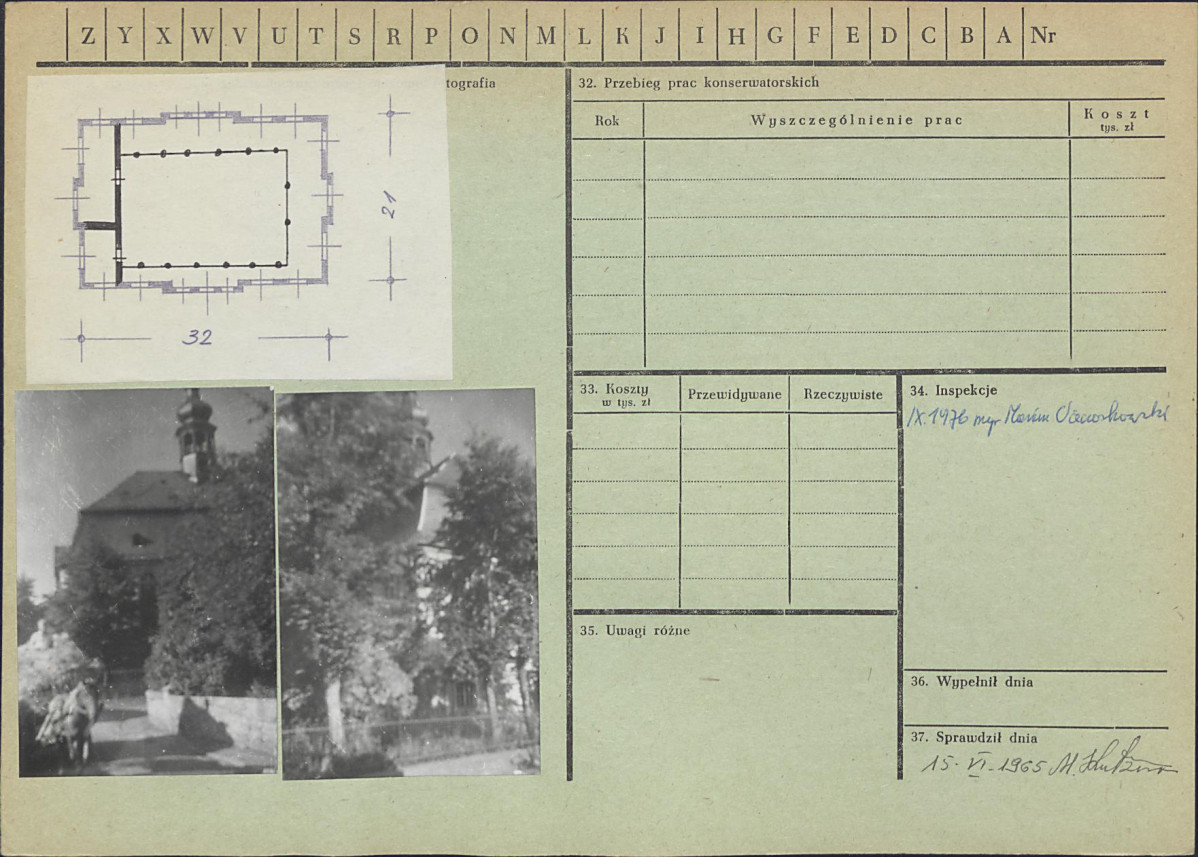 Z Y X W V U T S R P O N M L K J I H G F E D C B A Nr
tografia
21
32
32. Przebieg prac konserwatorskich
Rok
Wyszczególnienie prac
Koszt
tys. zł
33. Koszty
w tys. zł
Przewidywane
Rzeczywiste
34. Inspekcje
IX. 1976 mgr
35. Uwagi różne
36. Wypełnił dnia
37. Sprawdził dnia
15. VI. 1965 M.